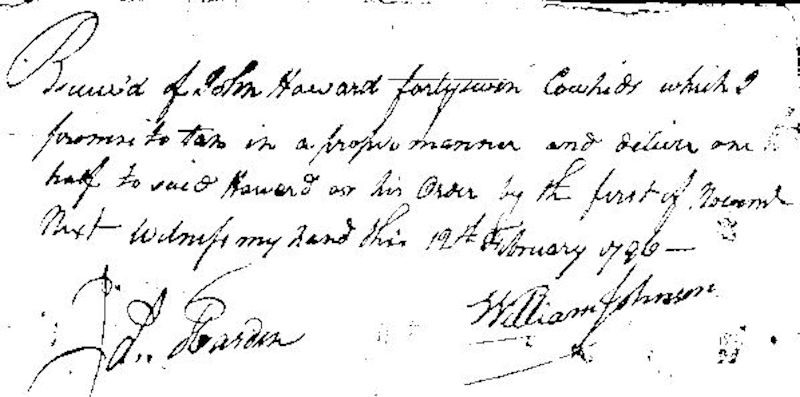 Receiv'd of John Haward fortyseven Cowhids which I
promise to tan in a proper manner and deliver one
half to said Haward or his Order by the first of Novemb
Next Witness my hand this 12th February 1796
William Johnson
J. Hardin